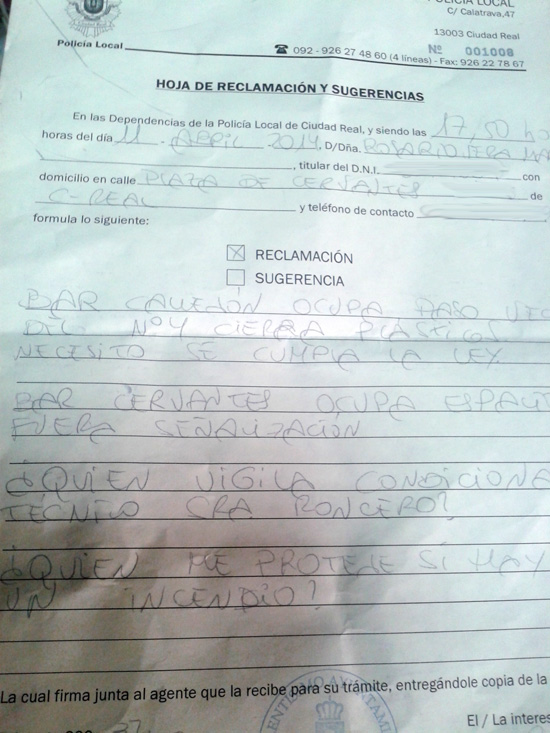 POLICÍA LOCAL
C/ Calatrava,47
13003 Ciudad Real
Policía Local
Nº 001008
☎ 092 - 926 27 48 60 (4 líneas) - Fax: 926 22 78 67
HOJA DE RECLAMACIÓN Y SUGERENCIAS
En las Dependencias de la Policía Local de Ciudad Real, y siendo las 17,50
horas del día 11 - ABRIL - 2014, D/Dña. ROSARIO
, titular del D.N.I. con
domicilio en calle PLAZA DE CERVANTES de
C-REAL y teléfono de contacto
formula lo siguiente:
☒ RECLAMACIÓN
☐ SUGERENCIA
BAR CALLEJÓN OCUPA PASO VEC
DEL Nº4 CIERRA PLASTICOS
NECESITO SE CUMPLA LA LEY
BAR CERVANTES OCUPA ESPACI
FUERA SEÑALIZACIÓN
¿QUIEN VIGILA CONDICIONA
TÉCNICO SRA RONCERO?
¿QUIEN ME PROTEJE SI HAY
UN INCENDIO?
La cual firma junta al agente que la recibe para su trámite, entregándole copia de la
El / La interes